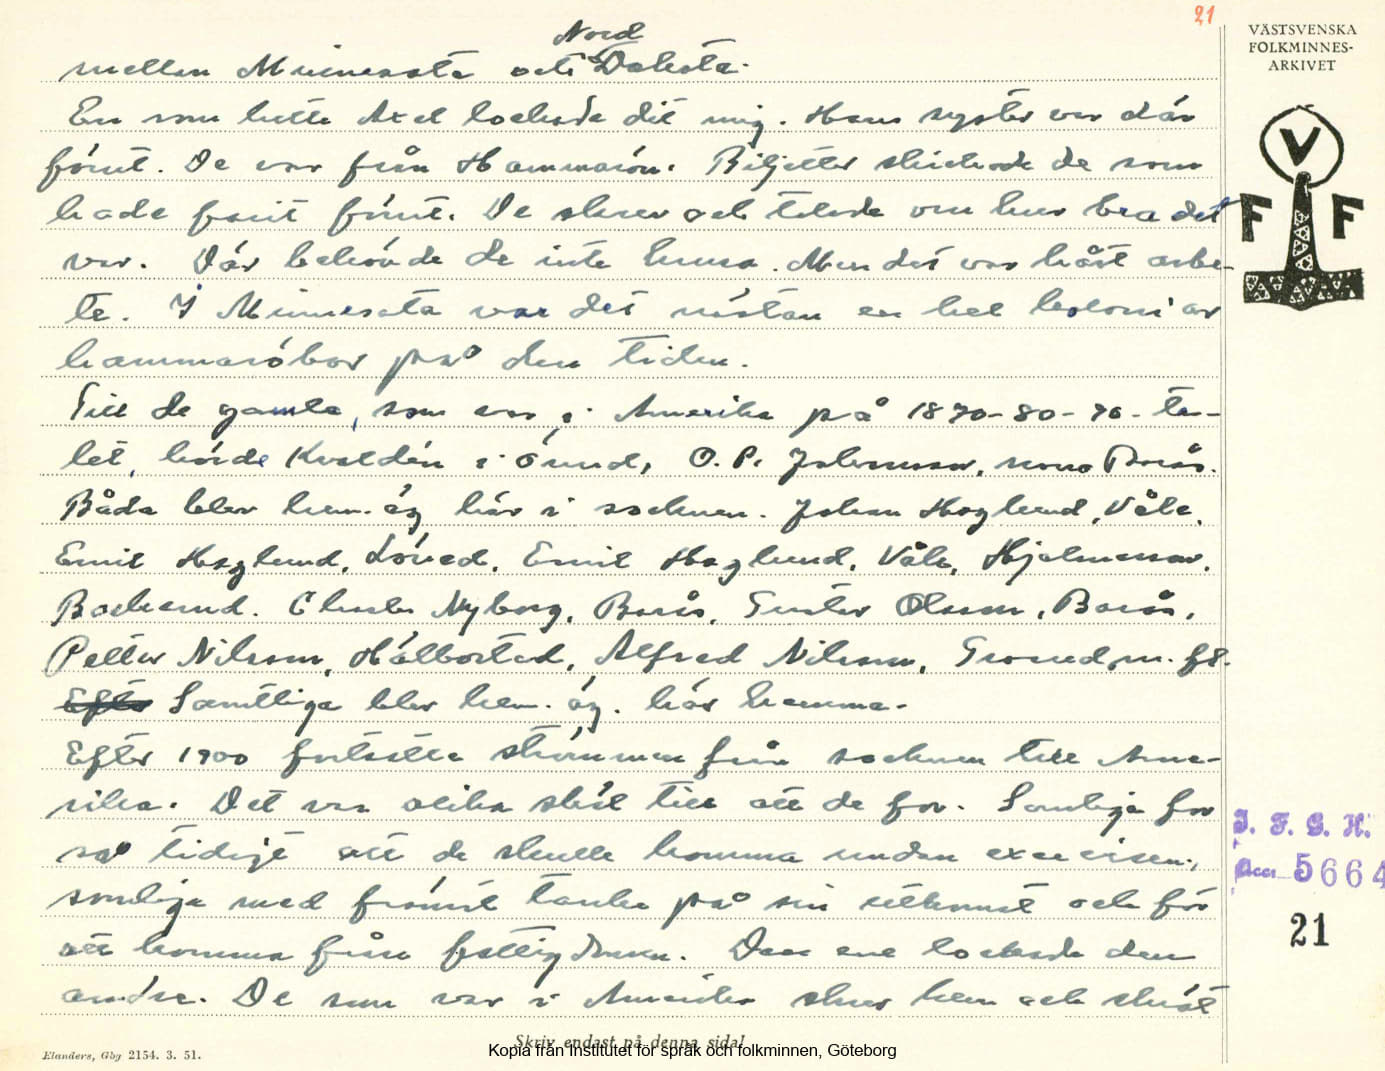 21
VÄSTSVENSKA
FOLKMINNES-
ARKIVET
V
F F
Nord
mellan Minnesota och Dakota.
En som hette Axel lockade dit mig. Hans syster var där
förut. De var från Hammarön. Biljetter skickade de som
hade farit förut. De skrev och talade om hur bra det
var. Där behövde de inte krusa. Men det var hårt arbe-
te. I Minnesota var det nästan en hel koloni av
hammaröbor på den tiden.
Till de gamla, som var i Amerika på 1870-80-90-ta-
let, hörde Kvaldén i Ö sund, O. P. Johansson, Borås.
Båda blev hem. äg här i socknen. Johan Haglund, Våle,
Emil Haglund, Löved, Emil Haglund, Våle, Hjalmarsson,
. Charles Nyborg, Borås, Gustav Olsson, Borås,
Petter Nilsson, Hälbostad, Alfred Nilsson, m. fl.
Efter Samtliga blev hem. äg. här hemma.
Efter 1900 fortsatte strömmen från socknen till Ame-
rika. Det var olika skäl till att de for. Somliga for
så tidigt att de skulle komma undan exercisen,
somliga med främst tanke på sin utkomst och för
att komma från fattigdomen. Den ene lockade den
andre. De som var i Amerika skrev hem och skröt
I. F. G. H.
Acc. 5664
21
Skriv endast på denna sida!
Elanders, Gbg 2154. 3. 51.
Kopia från Institutet för språk och folkminnen, Göteborg